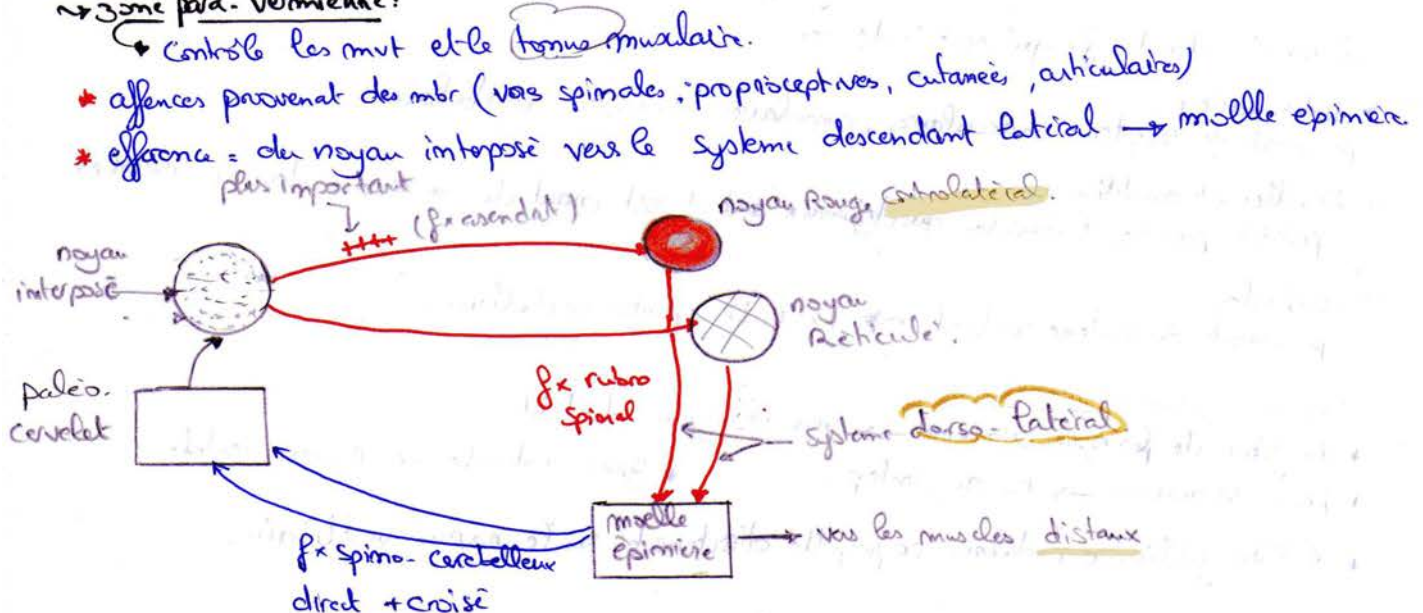 ↝ zone para-vermienne:
↳ contrôle les mvt et le tonus musculaire.
* afférences provenat des mbr (voies spinales, proprioceptives, cutanées, articulaires)
* efférence = du noyau interposé vers le système descendant latéral → moelle épinière.
plus important
(fx ascendat)
noyau Rouge controlatéral.
noyau
interposé
noyau
Réticulé.
paléo.
cervelet
fx rubro
spinal
système dorso-latéral
moelle
épinière
→ vers les muscles distaux
fx spino-cerebelleux
direct + croisé